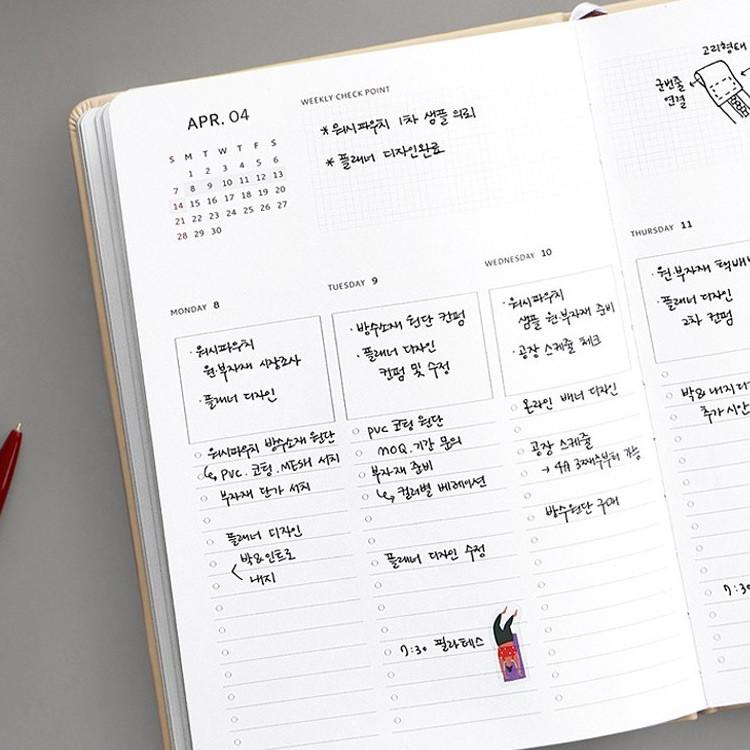 APR. 04
S M T W T F S
1 2 3 4 5 6
7 8 9 10 11 12 13
14 15 16 17 18 19 20
21 22 23 24 25 26 27
28 29 30
WEEKLY CHECK POINT
* 워시파우치 1차 샘플 의뢰
* 플래너 디자인완료
고리형태
군번줄
연결
MONDAY 8
· 워시파우치
원·부자재 시장조사
· 플래너 디자인
워시파우치 방수소재 원단
↳ PVC. 코팅. MESH 서치
부자재 단가 서치
플래너 디자인
< 박&인트로
내지
TUESDAY 9
· 방수소재 원단 컨펌
· 플래너 디자인
컨펌 및 수정
PVC 코팅 원단
MOQ. 기간 문의
부자재 준비
↳ 컬러별 베레이션
플래너 디자인 수정
7:30 필라테스
WEDNESDAY 10
· 워시파우치
샘플 원·부자재 준비
· 공장 스케줄 체크
온라인 배너 디자인
공장 스케줄
→ 4월 3째주부터 가능
방수원단 구매
THURSDAY 11
· 원·부자재 택배
· 플래너 디자인
2차 컨펌
박& 내지디
추가시안
7:30